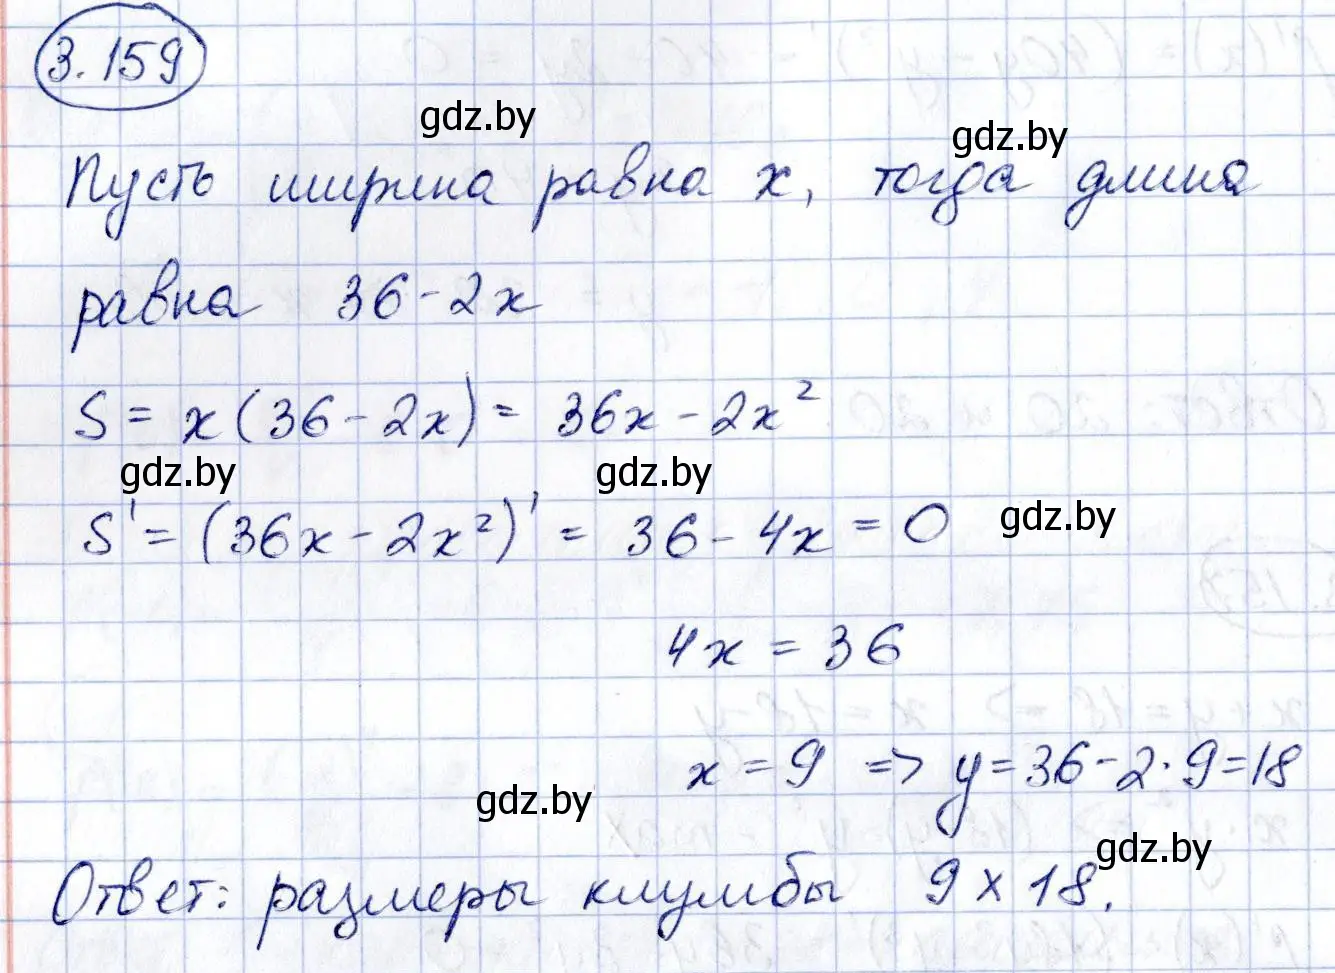 3.159
gdz.by
gdz.by
Пусть ширина равна x, тогда длина
равна 36 - 2x
S = x(36 - 2x) = 36x - 2x²
gdz.by gdz.by
S' = (36x - 2x²)' = 36 - 4x = 0 gdz.by
4x = 36
x = 9 => y = 36 - 2·9 = 18
gdz.by
gdz.by
Ответ: размеры клумбы 9 x 18.